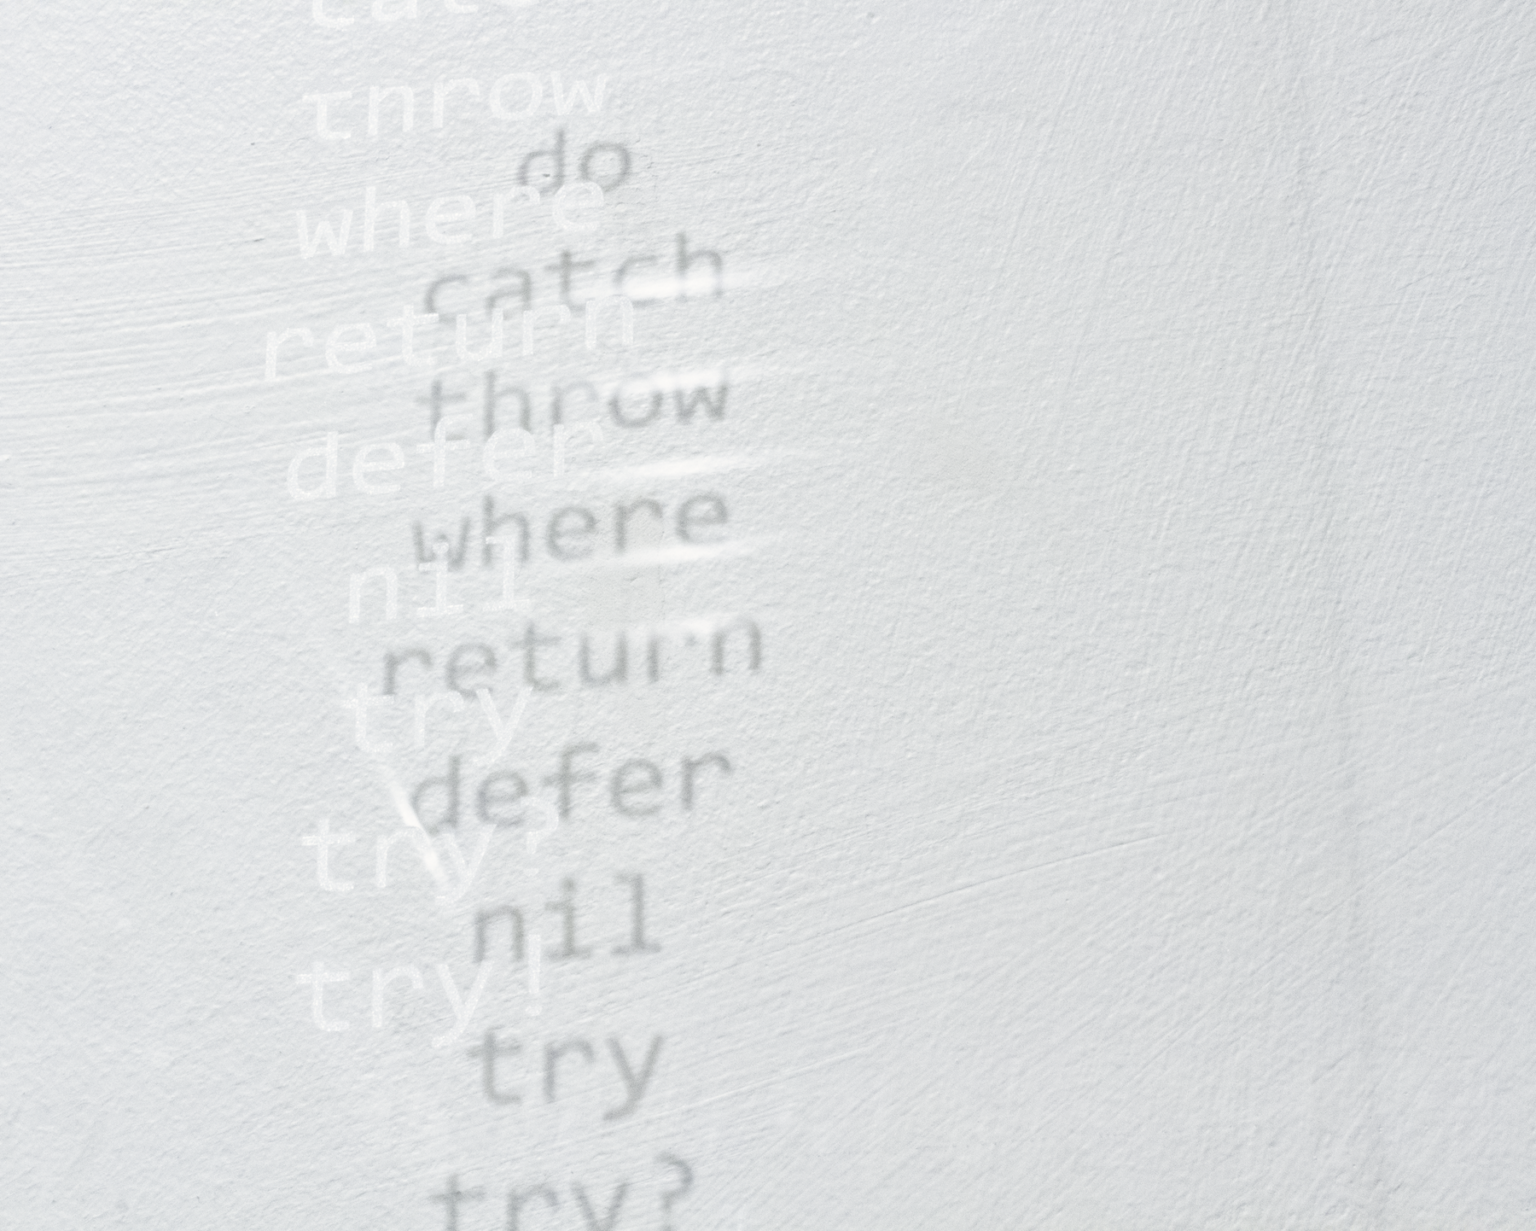 catch
throw
do
where
catch
return
throw
defer
where
nil
return
try
defer
try?
nil
try!
try
try?